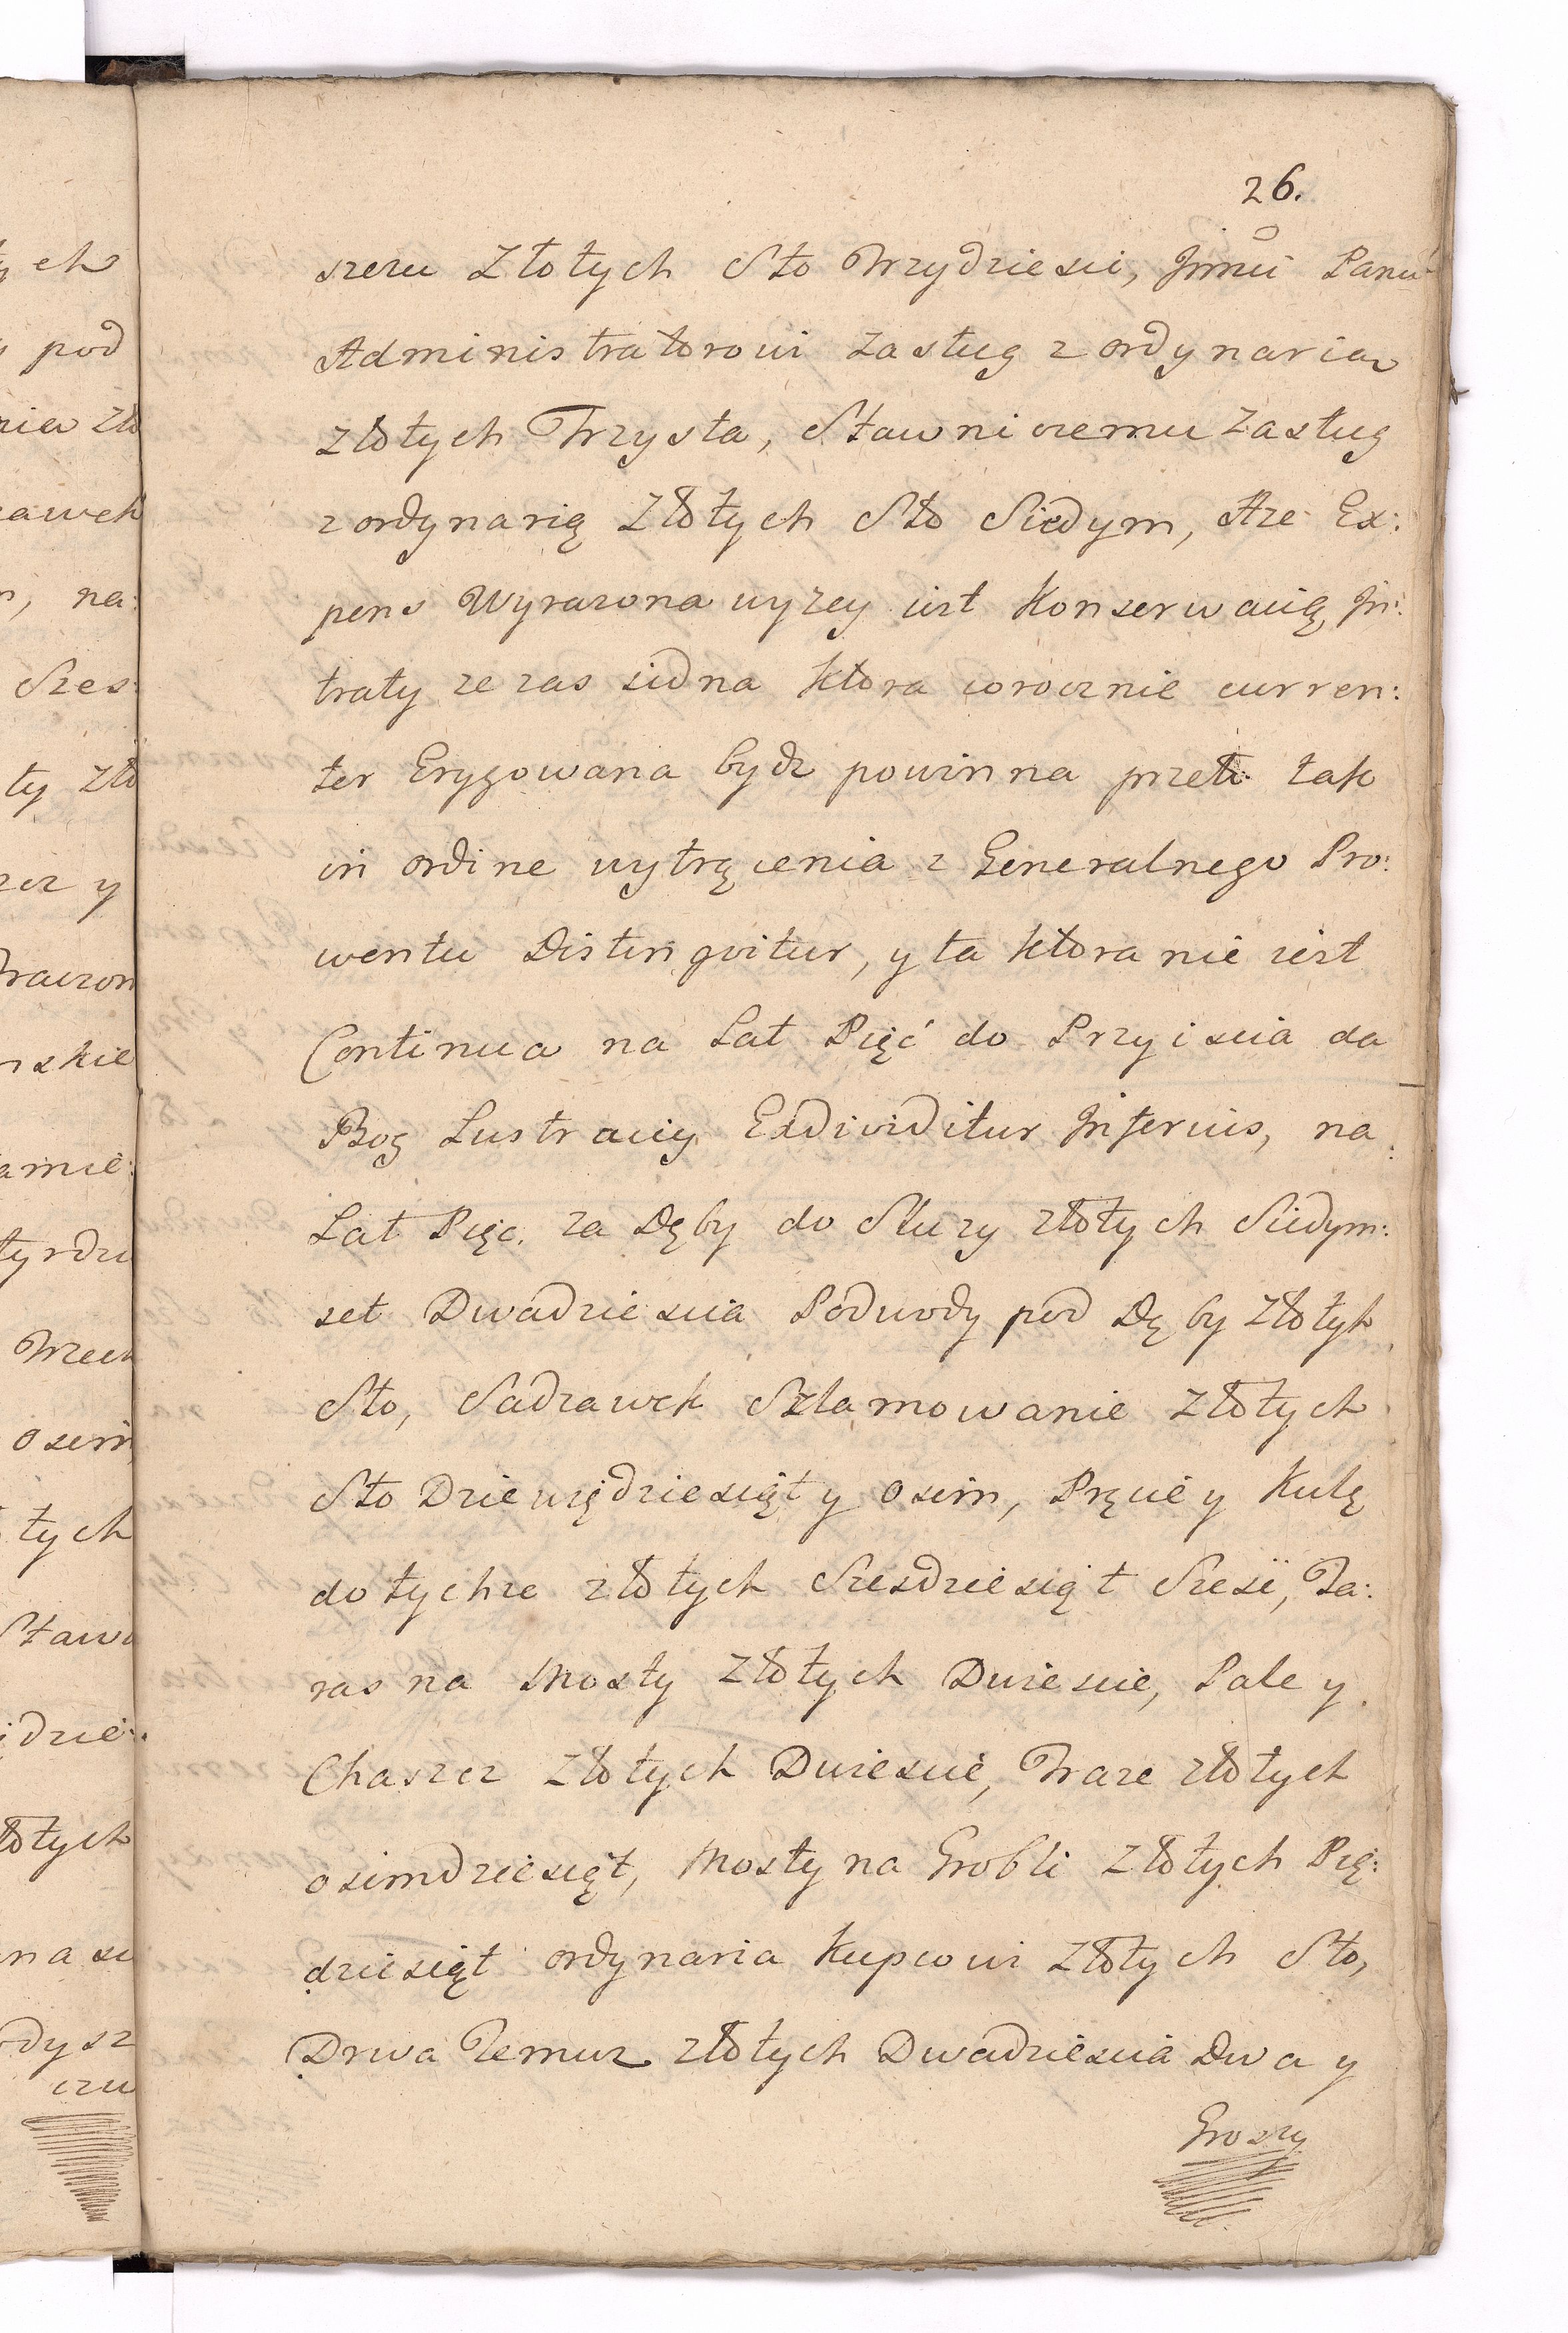 26.
szeru Złotych Sto Trzydziesci, Jmci Panu
Administratorowi zasług z ordynaria
złotych Trzysta, Stawniczemu zasług
z ordynarią Złotych Sto Siedym, Aze Ex:
pens Wyrazona wyzey iest Konserwacią In:
traty ze zas iedna ktora corocznie curren:
ter Erygowana bydz powinna przeto tak
in ordine wytrącenia z Generalnego Pro:
wentu Distinqvitur, y ta ktora nie iest
Continua na Lat Pięć do Przyiscia da
Bog Lustracyi Exdividitur Inferius, na
Lat Pięc. za Dęby do Sluzy złotych Siedym:
set Dwadziescia Podwody pod Dęby Złotyh
Sto, Sadzawek Szlamowanie Złotych
Sto Dziewiędziesiąt y Osim, Pręcie y Kulę
do tychze złotych Szesdziesiąt Szesc, Ta:
ras na Mosty Złotych Dwiescie, Pale y
Chaszcz Złotych Dwiescie, Tracze złotych
osimdziesiąt, Mosty na Grobli Złotych Pię:
dziesiąt ordynaria Kupcowi Złotych Sto,
Drwa Temuz złotych Dwadziescia Dwa y
Groszy
ych
pod
nia Zło
zawek
na:
Szes:
ty Zło
szcz y
Traczon
nskie
amie:
tyrdzi
Trzech
osim
tych
Stawu
idzie:
łotych
na sie
odysz
czu